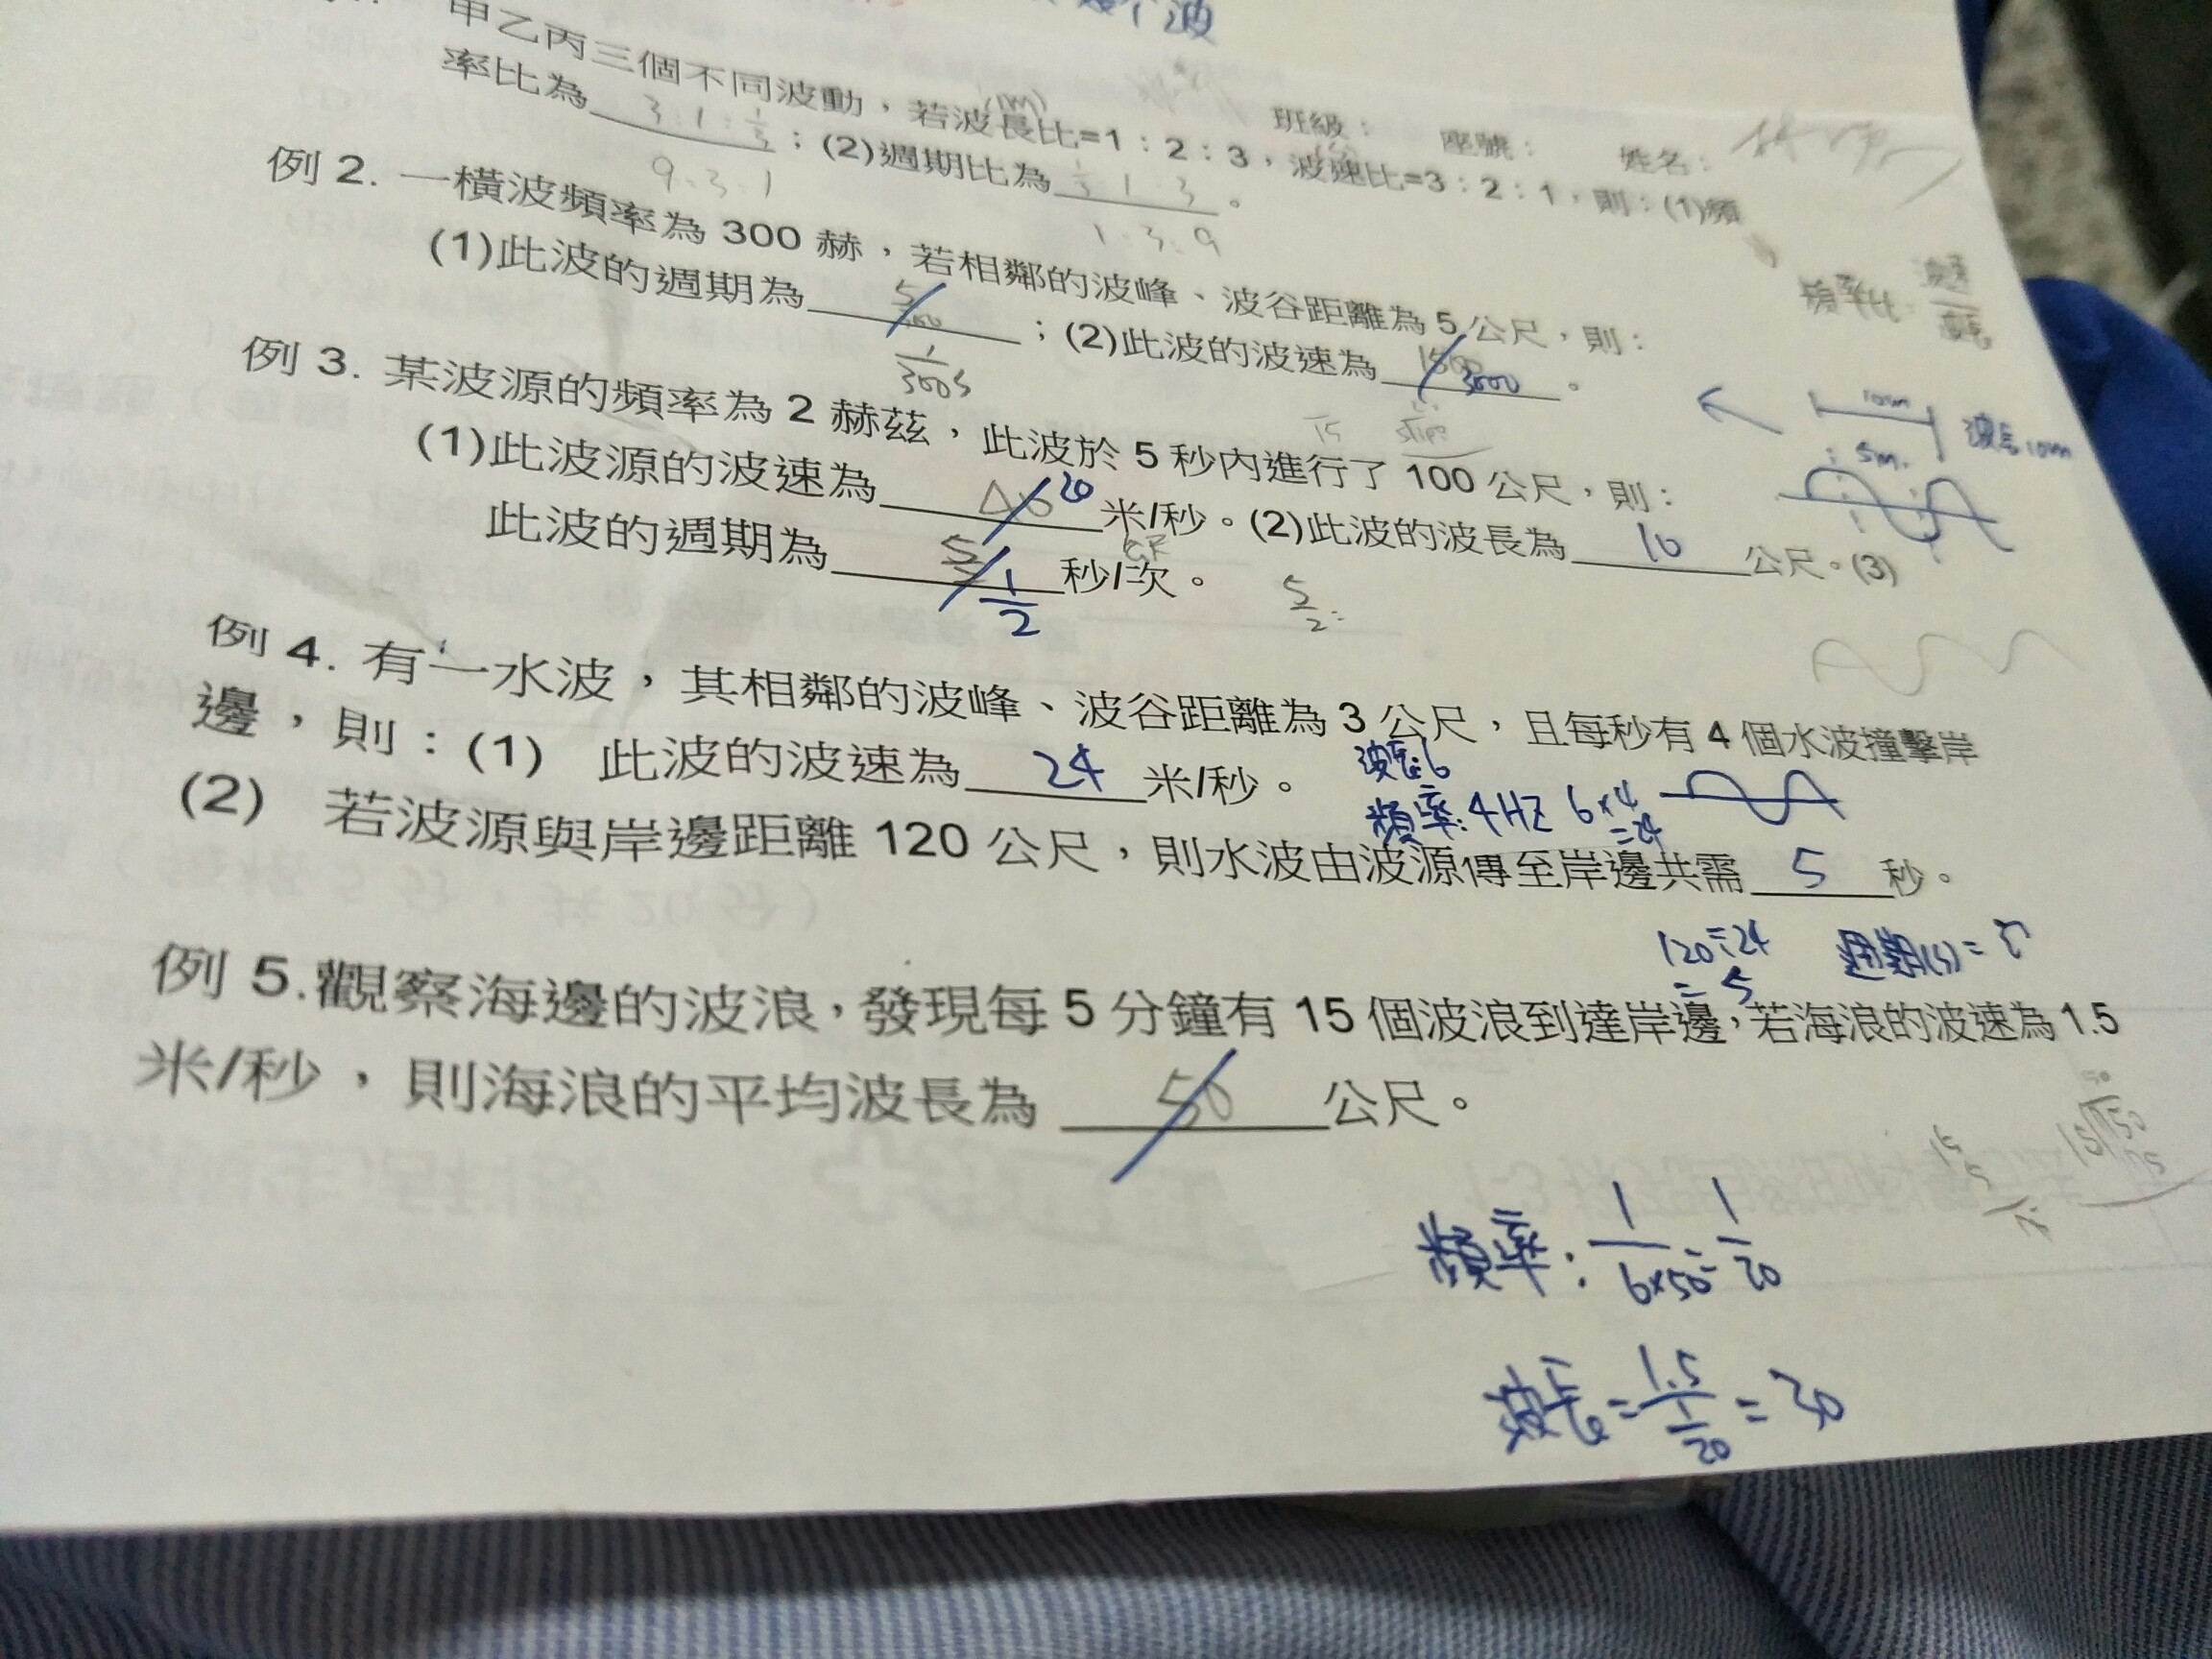 個波
甲乙丙三個不同波動，若波長比=1：2：3，波速比=3：2：1，則：(1)頻
(m)
班級： 座號： 姓名：
率比為 3:1:1/3 ；(2)週期比為 1/3 1:3 。
9:3:1
1:3:9
頻率比：波速/波長
例 2. 一橫波頻率為 300 赫，若相鄰的波峰、波谷距離為 5 公尺，則：
(1)此波的週期為 ；(2)此波的波速為 1500 3000 。
1/300 s
10m 波長10m
5m
例 3. 某波源的頻率為 2 赫茲，此波於 5 秒內進行了 100 公尺，則：
(1)此波源的波速為 20 米/秒。(2)此波的波長為 10 公尺。(3)
此波的週期為 5/2 1/2 秒/次。
5/2
例 4. 有一水波，其相鄰的波峰、波谷距離為 3 公尺，且每秒有 4 個水波撞擊岸
邊，則：(1) 此波的波速為 24 米/秒。
波長:6
頻率:4HZ 6×4
=24
(2) 若波源與岸邊距離 120 公尺，則水波由波源傳至岸邊共需 5 秒。
120÷24 週期(s)=
= 5
例 5.觀察海邊的波浪，發現每 5 分鐘有 15 個波浪到達岸邊，若海浪的波速為 1.5
米/秒，則海浪的平均波長為 50 公尺。
頻率：1/6×50=1/20
波長=1.5/1/20=30